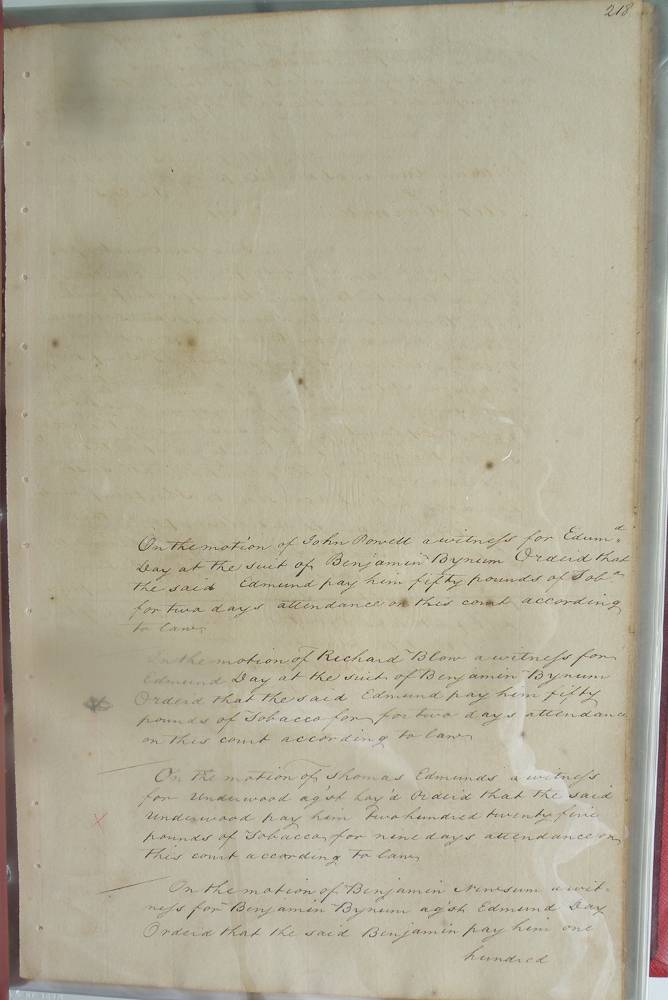 218
On the motion of John Powell a witness for Edum.d
Day at the suit of Benjamin Bynum Orderd that
the said Edmund pay him fifty pounds of Tob.o
for two days attendance on this court according
to law.
On the motion of Richard Blow a witness for
Edmund Day at the suit of Benjamin Bynum
Orderd that the said Edmund pay him fifty
pounds of Tobacco for for two days attendance
on this court according to law
On the motion of Thomas Edmunds a witness
for Underwood ag'st Loy'd Orderd that the said
Underwood pay him two hundred twenty five
pounds of Tobacco for nine days attendance on
this court according to law
On the motion of Benjamin Newsum a wit-
ness for Benjamin Bynum ag'st Edmund Day
Orderd that the said Benjamin pay him one
hundred